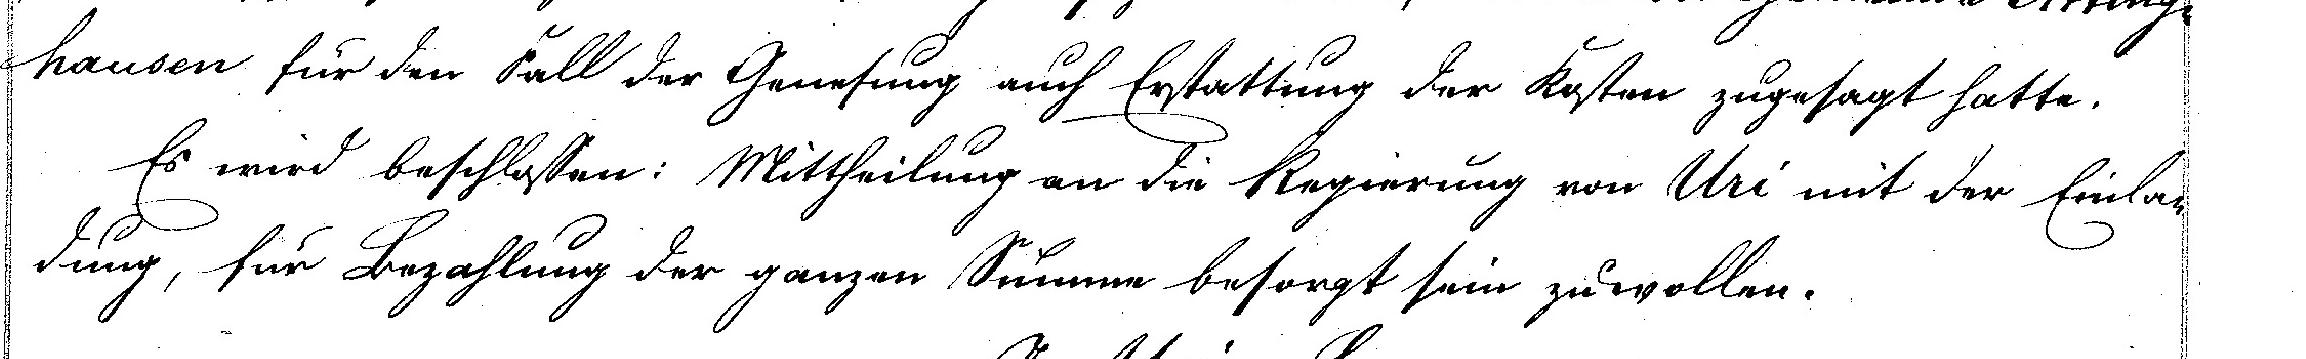 hausen für den Fall der Genesung auch Erstattung der Kosten zugesagt hatte.
Es wird beschlossen: Mittheilung an die Regierung von Uri mit der Einla-
dung, für Bezahlung der ganzen Summe besorgt sein zu wollen.